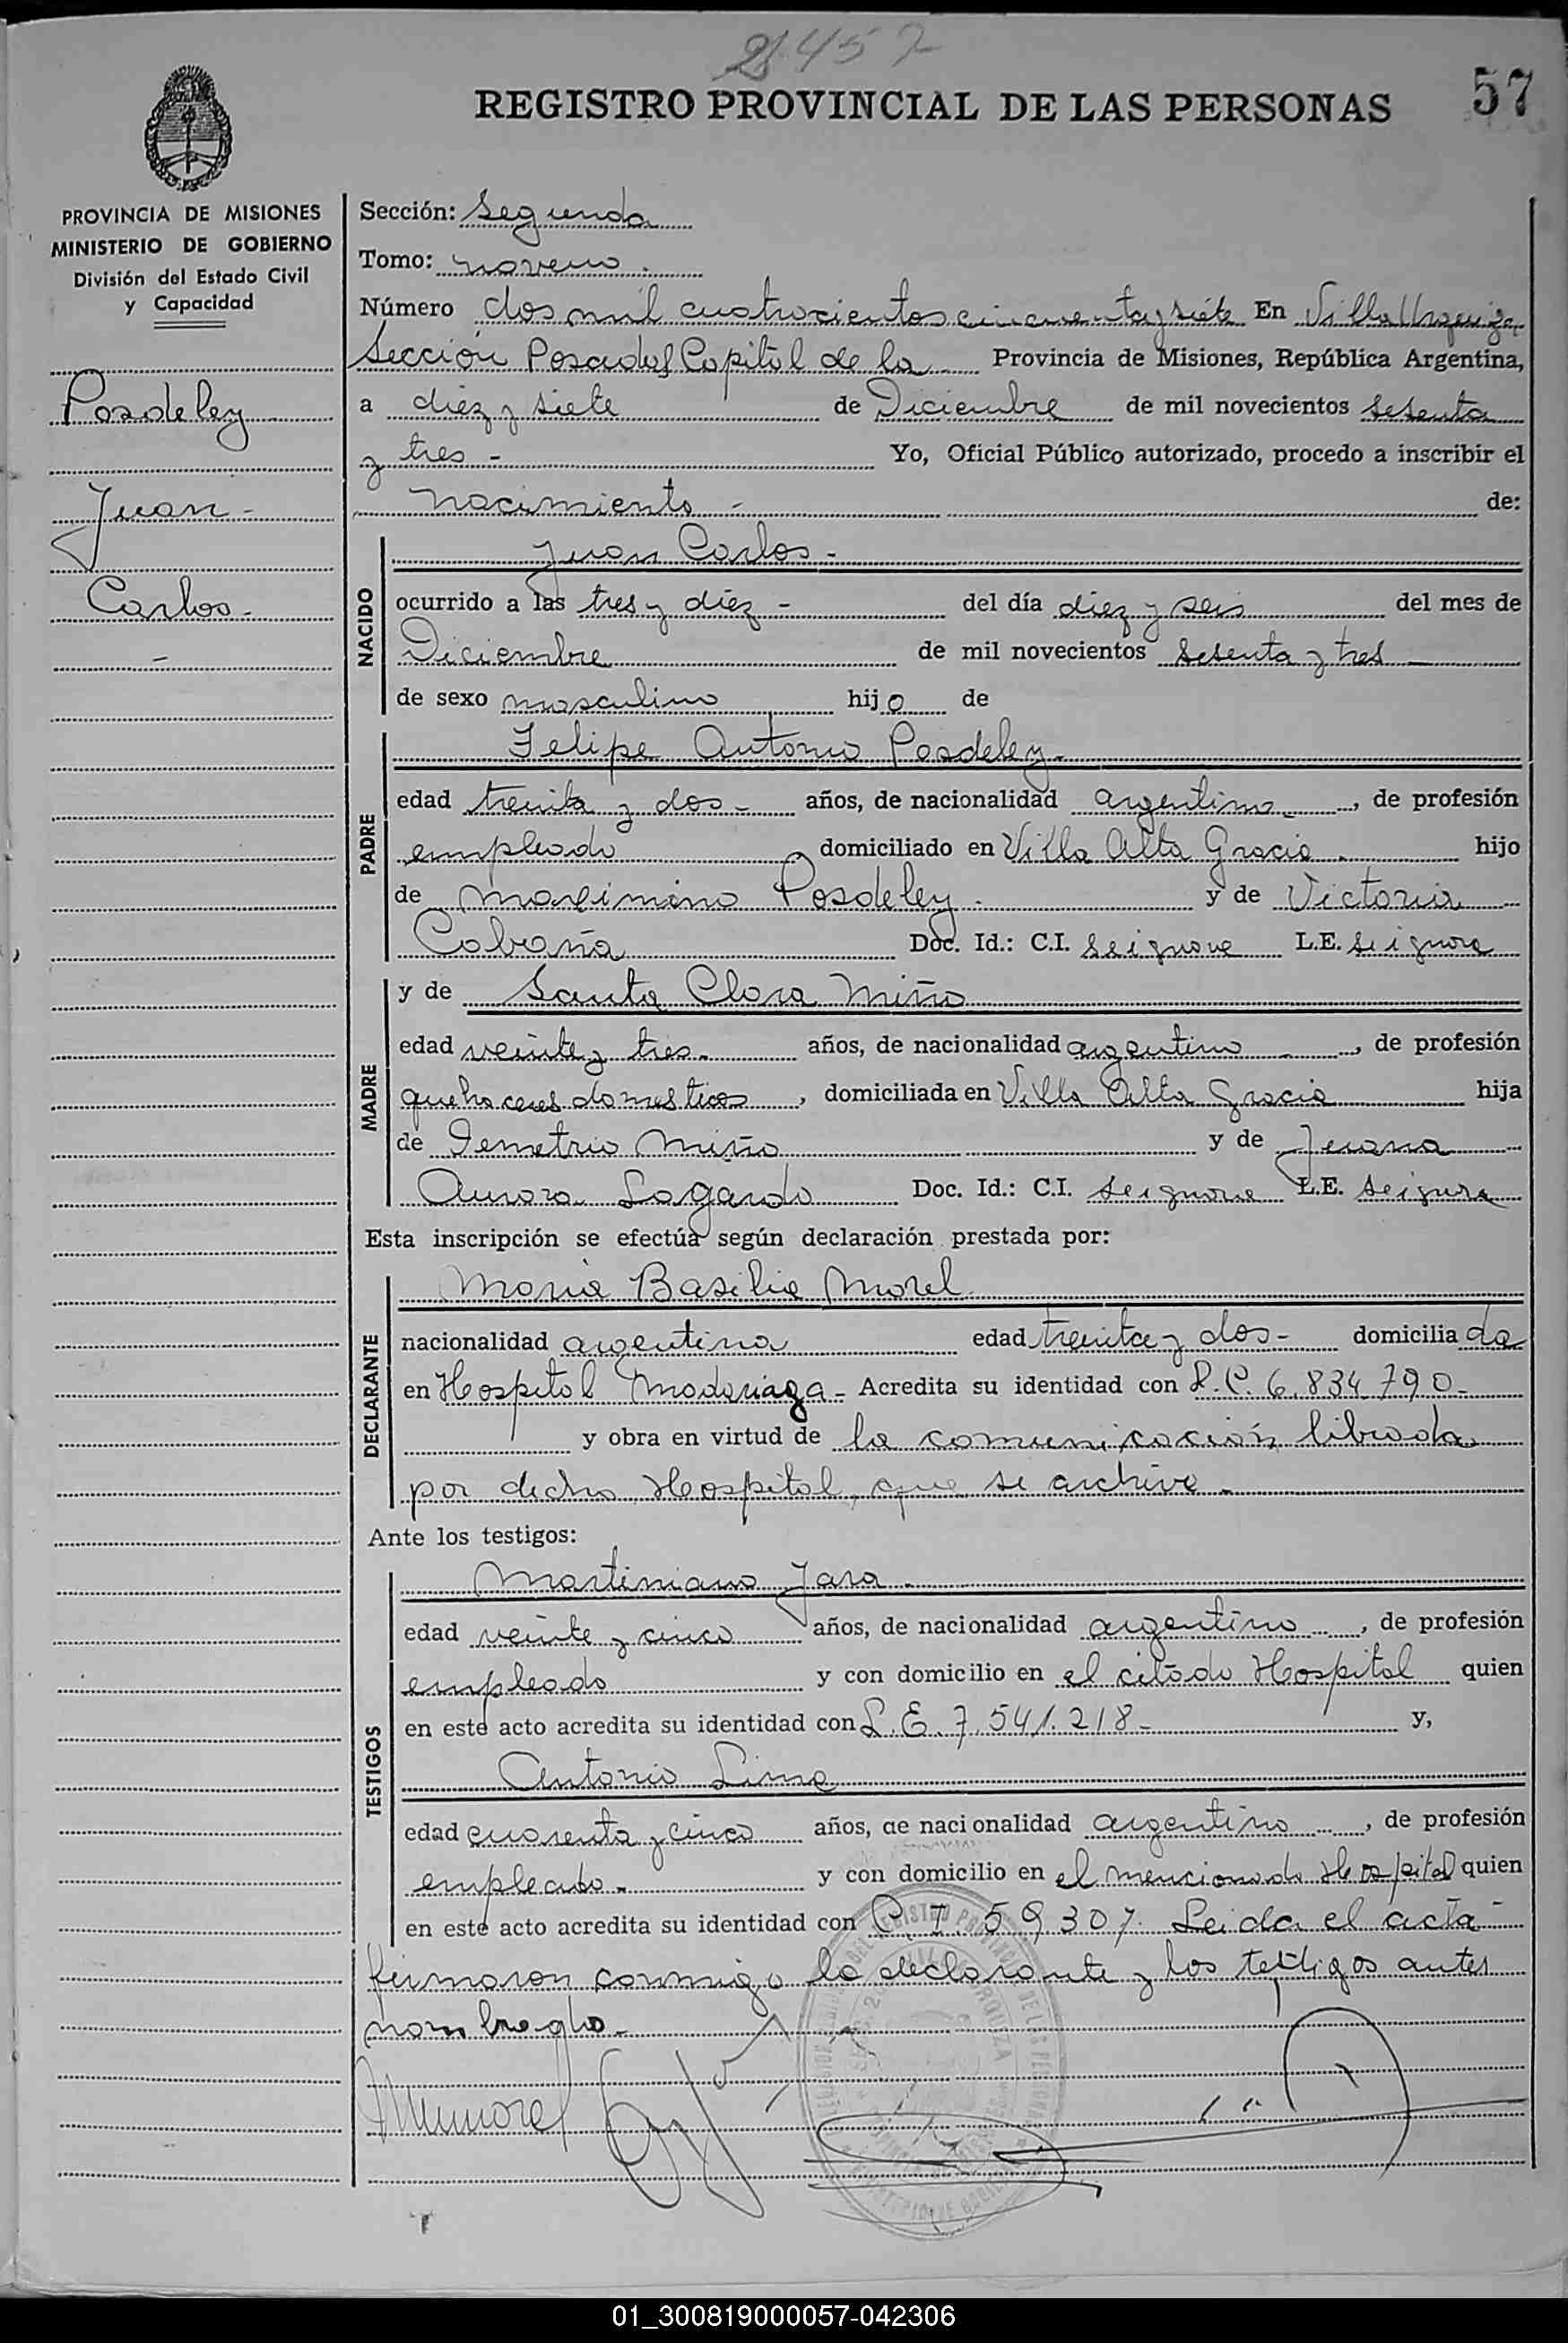 2457
REGISTRO PROVINCIAL DE LAS PERSONAS
57
PROVINCIA DE MISIONES
MINISTERIO DE GOBIERNO
División del Estado Civil
y Capacidad
Posdeley
Juan -
Carlos -
Sección: Segunda
Tomo: noveno.
Número dos mil cuatrocientos cincuenta y siete En Villa Urquiza
Sección Posadas Capital de la Provincia de Misiones, República Argentina,
a diez y siete de Diciembre de mil novecientos setenta
y tres - Yo, Oficial Público autorizado, procedo a inscribir el
nacimiento - de:
NACIDO
Juan Carlos -
ocurrido a las tres y diez - del día diez y seis del mes de
Diciembre de mil novecientos setenta y tres
de sexo masculino hijo de
PADRE
Felipe Antonio Posdeley -
edad treinta y dos - años, de nacionalidad argentino, de profesión
empleado domiciliado en Villa Alta Gracia hijo
de Maximino Posdeley - y de Victoria
Cabraña Doc. Id.: C.I. se ignora L.E. se ignora
MADRE
y de Santa Clara Miño
edad veinte y tres - años, de nacionalidad argentina, de profesión
quehaceres domesticos, domiciliada en Villa Alta Gracia hija
de Demetrio Miño y de Juana
Aurora Lagardo Doc. Id.: C.I. se ignora L.E. se ignora
Esta inscripción se efectúa según declaración prestada por:
DECLARANTE
Maria Basilia Morel
nacionalidad argentina edad treinta y dos - domiciliada
en Hospital Madariaga - Acredita su identidad con L.C. 6.834.790 -
y obra en virtud de la comunicación librada
por dicho Hospital, que se archiva -
Ante los testigos:
TESTIGOS
Martiniano Jara -
edad veinte y cinco años, de nacionalidad argentino, de profesión
empleado y con domicilio en el citado Hospital quien
en este acto acredita su identidad con L.E. 7.541.218 - y,
Antonio Lima
edad cuarenta y cinco años, de nacionalidad argentino, de profesión
empleado - y con domicilio en el mencionado Hospital quien
en este acto acredita su identidad con C.I. 59307. Leida el acta
firmaron conmigo la declarante y los testigos antes
nombrados -
Mmorel
01_300819000057-042306